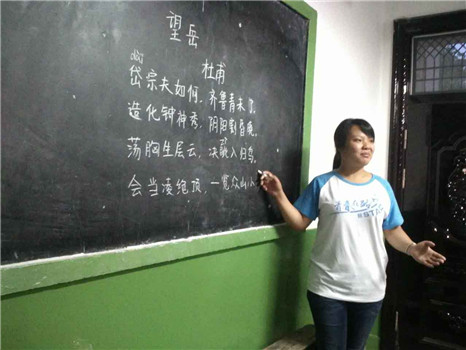 望岳
杜甫
dài
岱宗夫如何，齐鲁青未了。
造化钟神秀，阴阳割昏晓。
荡胸生层云，决眦入归鸟。
会当凌绝顶，一览众山小